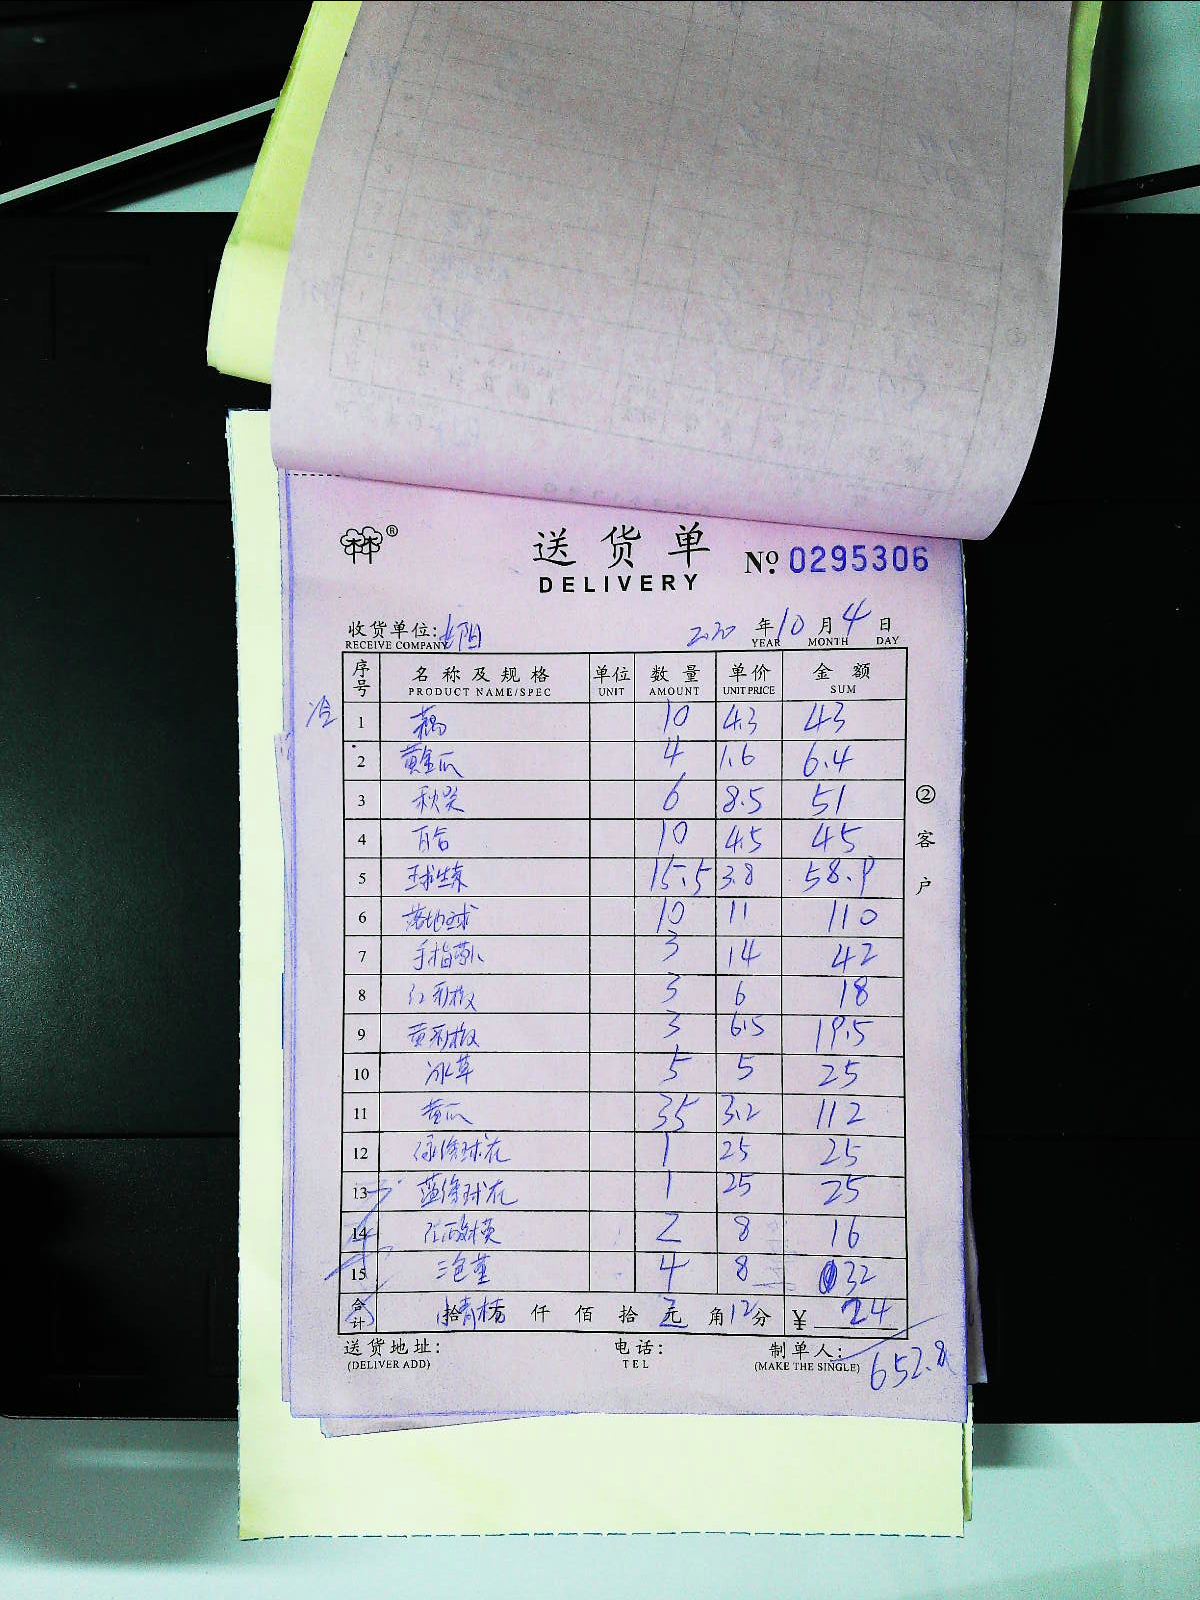 林 ®
送货单
DELIVERY
No 0295306
收货单位:
RECEIVE COMPANY
2020 年 10 月 4 日
YEAR MONTH DAY
序号 名称及规格 单位 数量 单价 金额
PRODUCT NAME/SPEC UNIT AMOUNT UNIT PRICE SUM
冷
1 藕 10 4.3 43
2 黄金瓜 4 1.6 6.4
3 秋葵 6 8.5 51
4 百合 10 4.5 45
5 球生菜 15.5 3.8 58.9
6 落地球 10 11 110
7 手指萝卜 3 14 42
8 红彩椒 3 6 18
9 黄彩椒 3 6.5 19.5
10 冰草 5 5 25
11 黄瓜 35 3.2 112
12 绣球花 1 25 25
13 蓝绣球花 1 25 25
14 2 8 16
15 三色堇 4 8 32
合计 拾 万 仟 佰 拾 元 角 12 分 ¥ 24
送货地址: 电话: 制单人:
(DELIVER ADD) TEL (MAKE THE SINGLE)
652.8
②客户